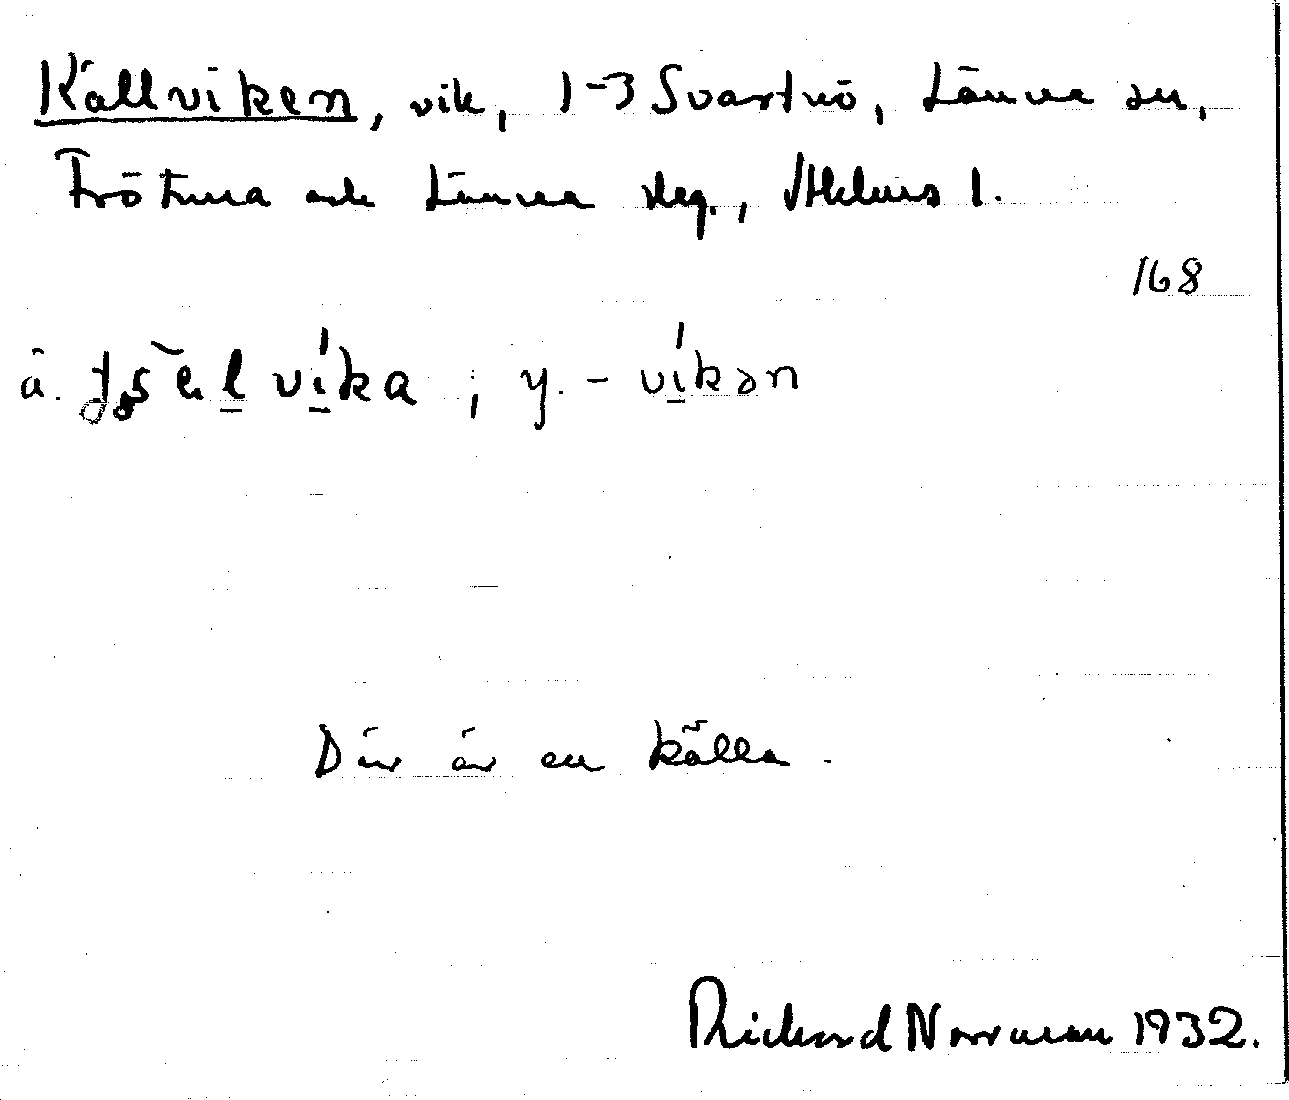 Källviken, vik, 1-3 Svartnö, Länna sn,
Frötuna och Länna skg., Sthlms l.
168
ä. vı́ka ; y. - vı́kən
Där är en källa.
Rickard Norrman 1932.